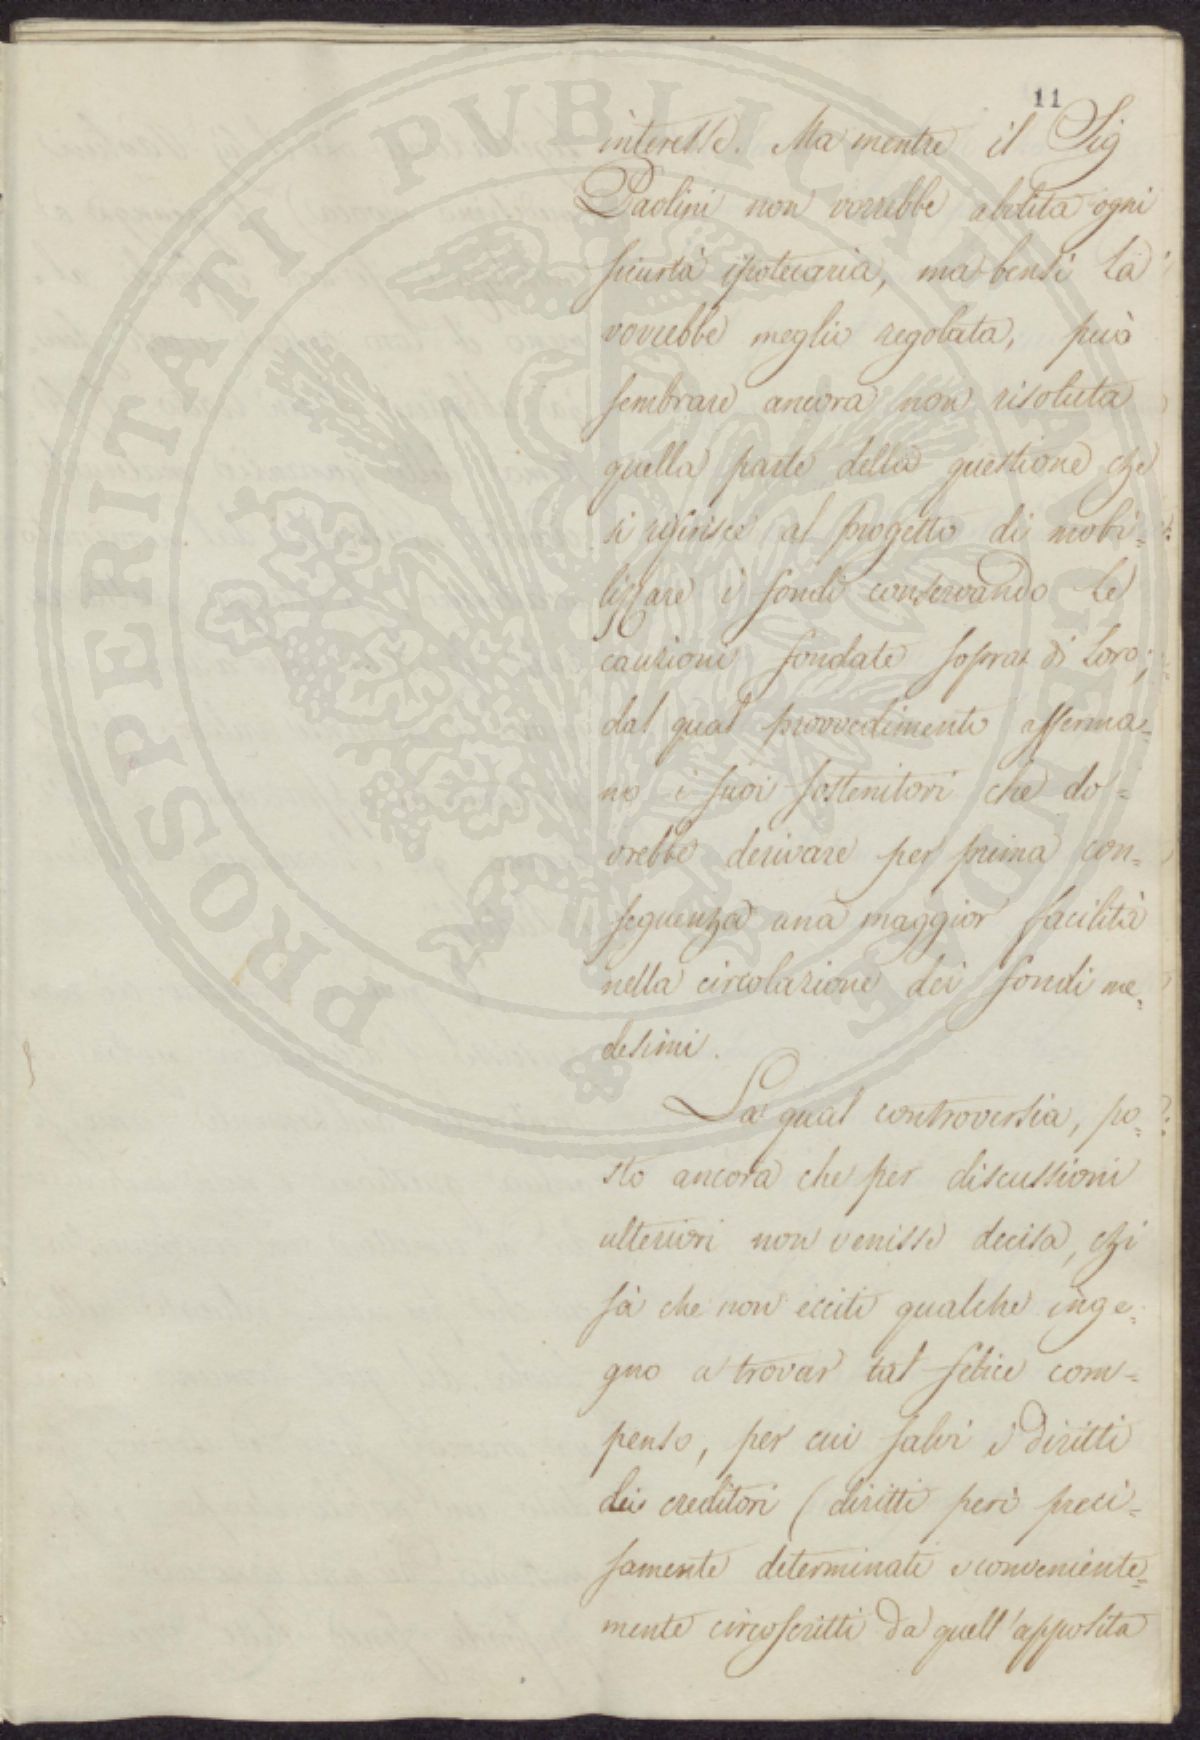 11
interesse. Ma mentre il Sig
Paolini non vorrebbe abolita ogni
sicurtà ipotecaria, ma bensì la
vorrebbe meglio regolata, può
sembrare ancora non risoluta
quella parte della questione che
si riferisce al progetto di mobi=
lizzare i fondi conservando le
cauzioni fondate sopra di loro;
dal qual provvedimento afferma=
no i suoi sostenitori che do=
vrebbe derivare per prima con=
seguenza una maggior facilità
nella circolazione dei fondi me=
desimi.
La qual controversia, po=
sto ancora che per discussioni
ulteriori non venisse decisa, chi
sà che non ecciti qualche inge=
gno a trovar tal felice com=
penso, per cui salvi i diritti
dei creditori (diritti però preci=
samente determinati e conveniente=
mente circoscritti da quell'apposita
PROSPERITATI PVBLICAE AVGENDAE